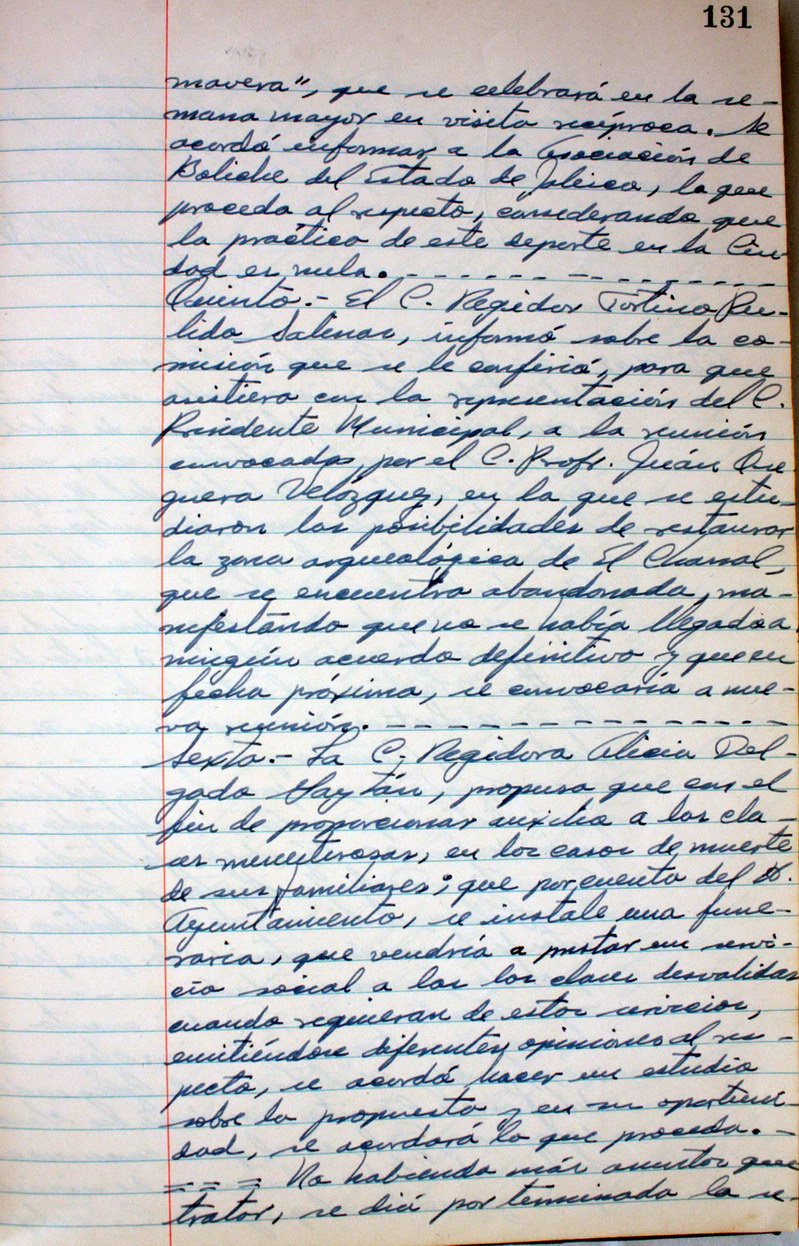 131
mavera", que se celebrará en la se-
mana mayor en visita recíproca. Se
acordó informar a la Asociación de
Boliche del Estado de Jalisco, lo que
proceda al respecto, considerando que
la práctica de este deporte en la Ciu-
dad es nula. - - - - - - - - - - - - -
Quinto.- El C. Regidor Fortino Pu-
lido Salinas, informó sobre la co-
misión que se le confirió, para que
asistiera con la representación del C.
Presidente Municipal, a la reunión
convocada por el C. Profr. Juán Ose
guera Velázquez, en la que se estu-
diaron las posibilidades de restaurar
la zona arqueológica de El Chanal,
que se encuentra abandonada, ma-
nifestando que no se había llegado a
ningún acuerdo definitivo y que en
fecha próxima, se convocaría a nue-
va reunión. - - - - - - - - - - - - -
Sexto.- La C. Regidora Alicia Del-
gado Gaytán, propuso que con el
fin de proporcionar auxilio a las cla-
ses menesterosas, en los casos de muerte
de sus familiares; que por cuenta del H.
Ayuntamiento, se instale una fune-
raria, que vendría a prestar un servi-
cio social a las los clases desvalidas
cuando requieran de estos servicios,
emitiéndose diferentes opiniones al res-
pecto, se acordó hacer un estudio
sobre la propuesta y en su oportuni-
dad, se acordará lo que proceda. -
= = = No habiendo más asuntos que
tratar, se dió por terminada la se-